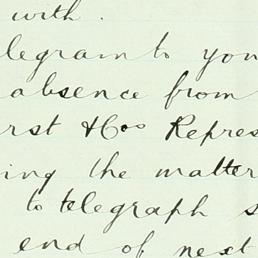 with.
legram to you
absence from
rst & Cos Repres
ing the matter
to telegraph s
end of next